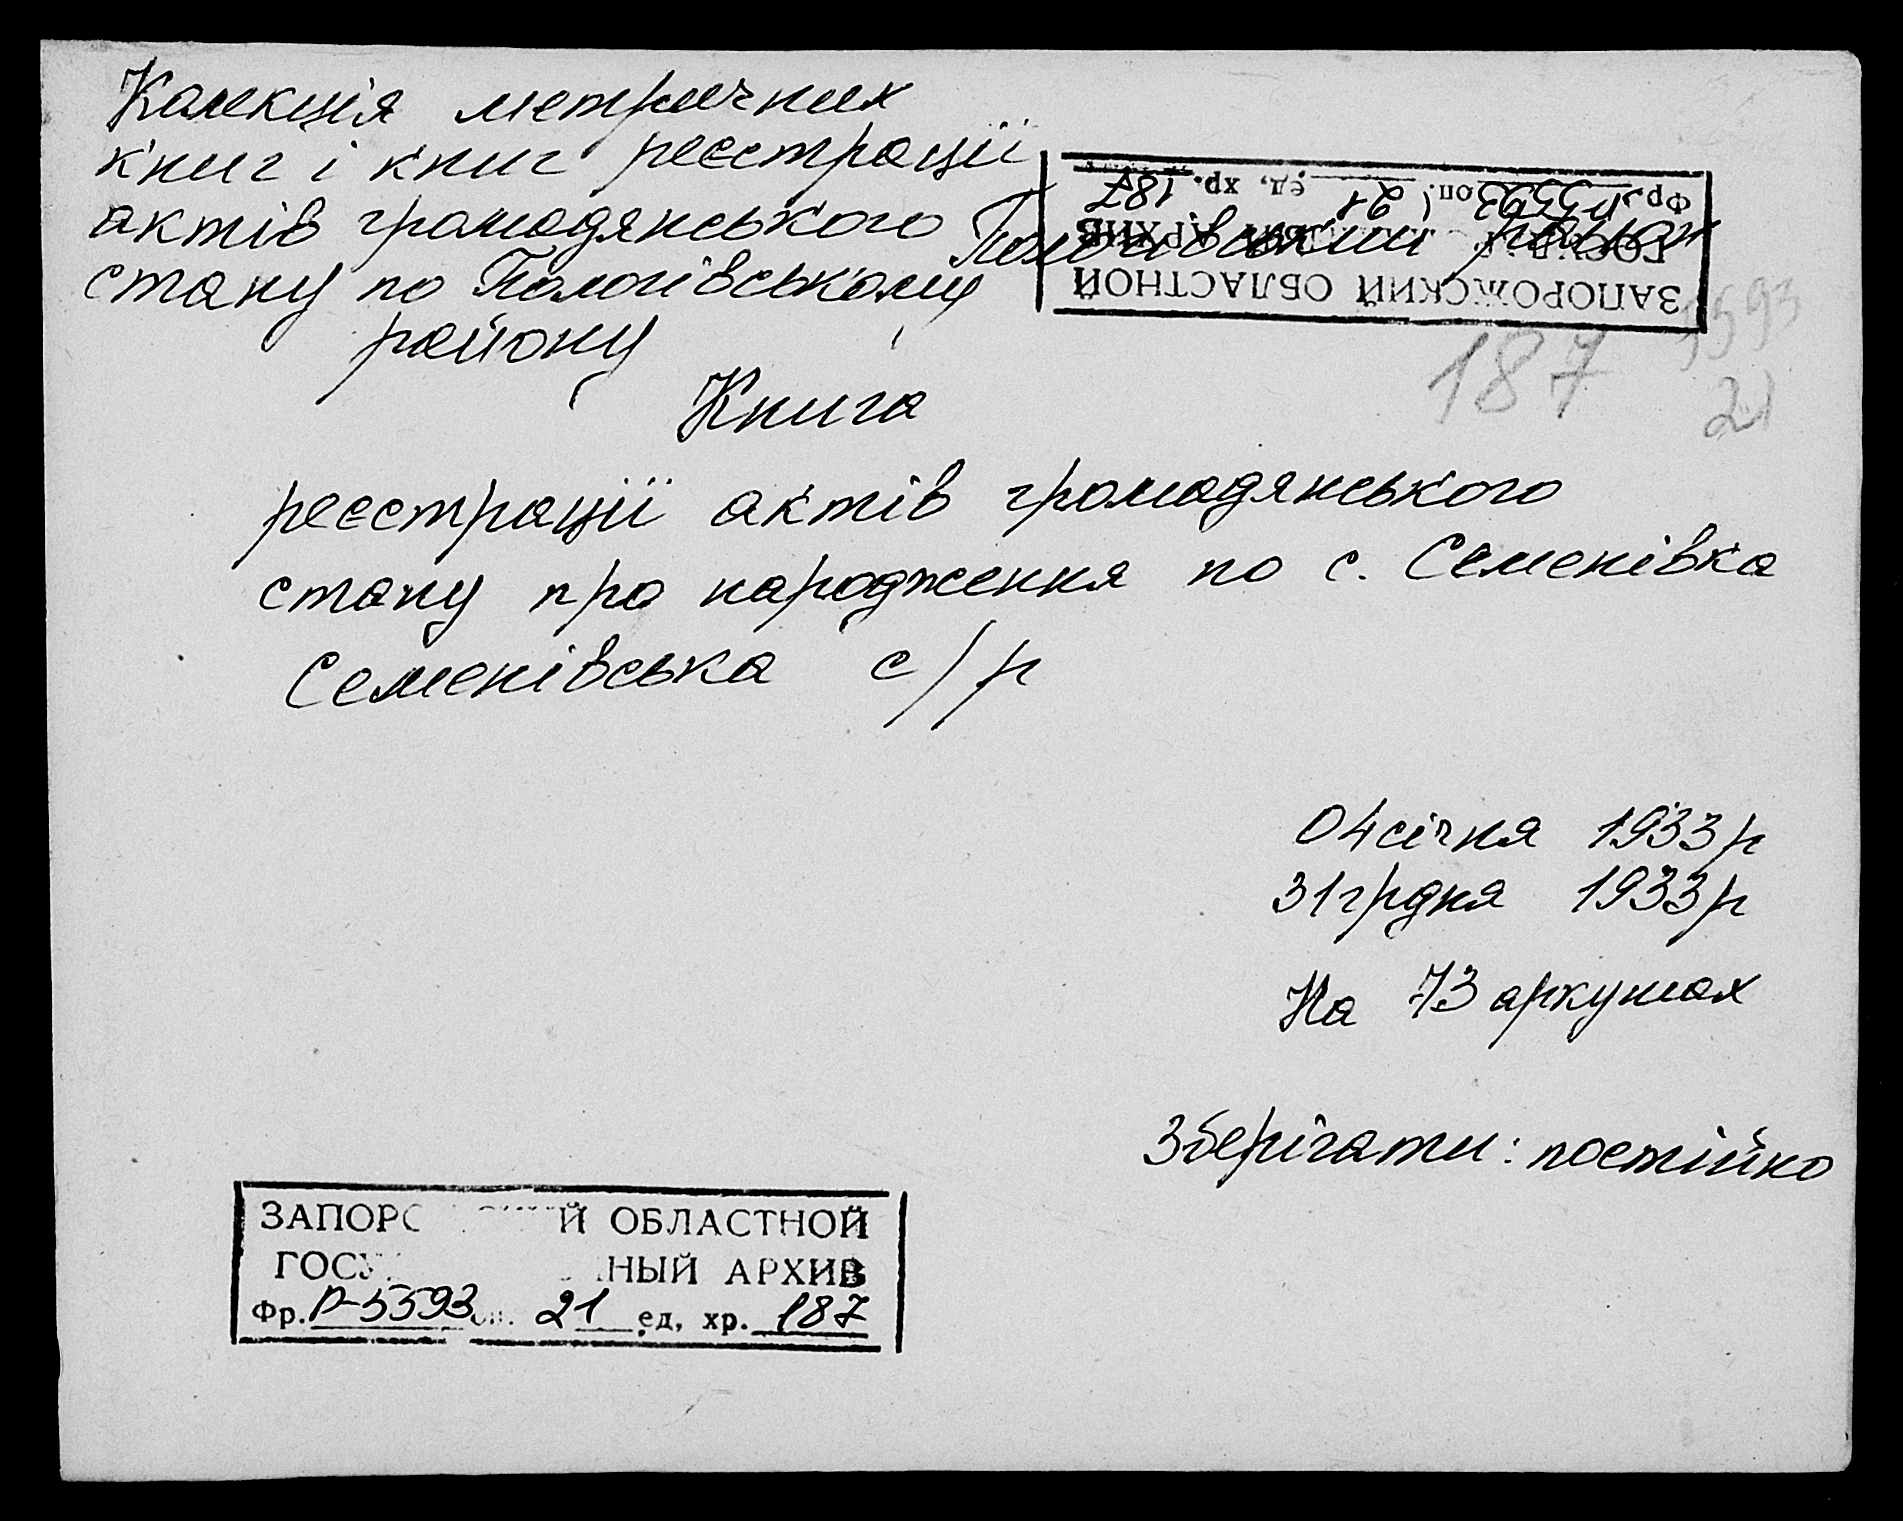 Колекція метричних
книг і книг реєстрації
актів громадянського
стану по Пологівському
району
Пологівський район
ЗАПОРОЖСКИЙ ОБЛАСТНОЙ
АРХИВ
Фр. Р-5593 оп. 21 ед. хр. 187
187
5593
21
Книга
реєстрації актів громадянського
стану про народження по с. Семенівка
Семенівська с/р
04 січня 1933 р
31 грдня 1933 р
На 73 аркушах
Зберігати: постійно
ЗАПОРО Й ОБЛАСТНОЙ
ГОСУ НЫЙ АРХИВ
Фр. Р-5593 оп. 21 ед. хр. 187